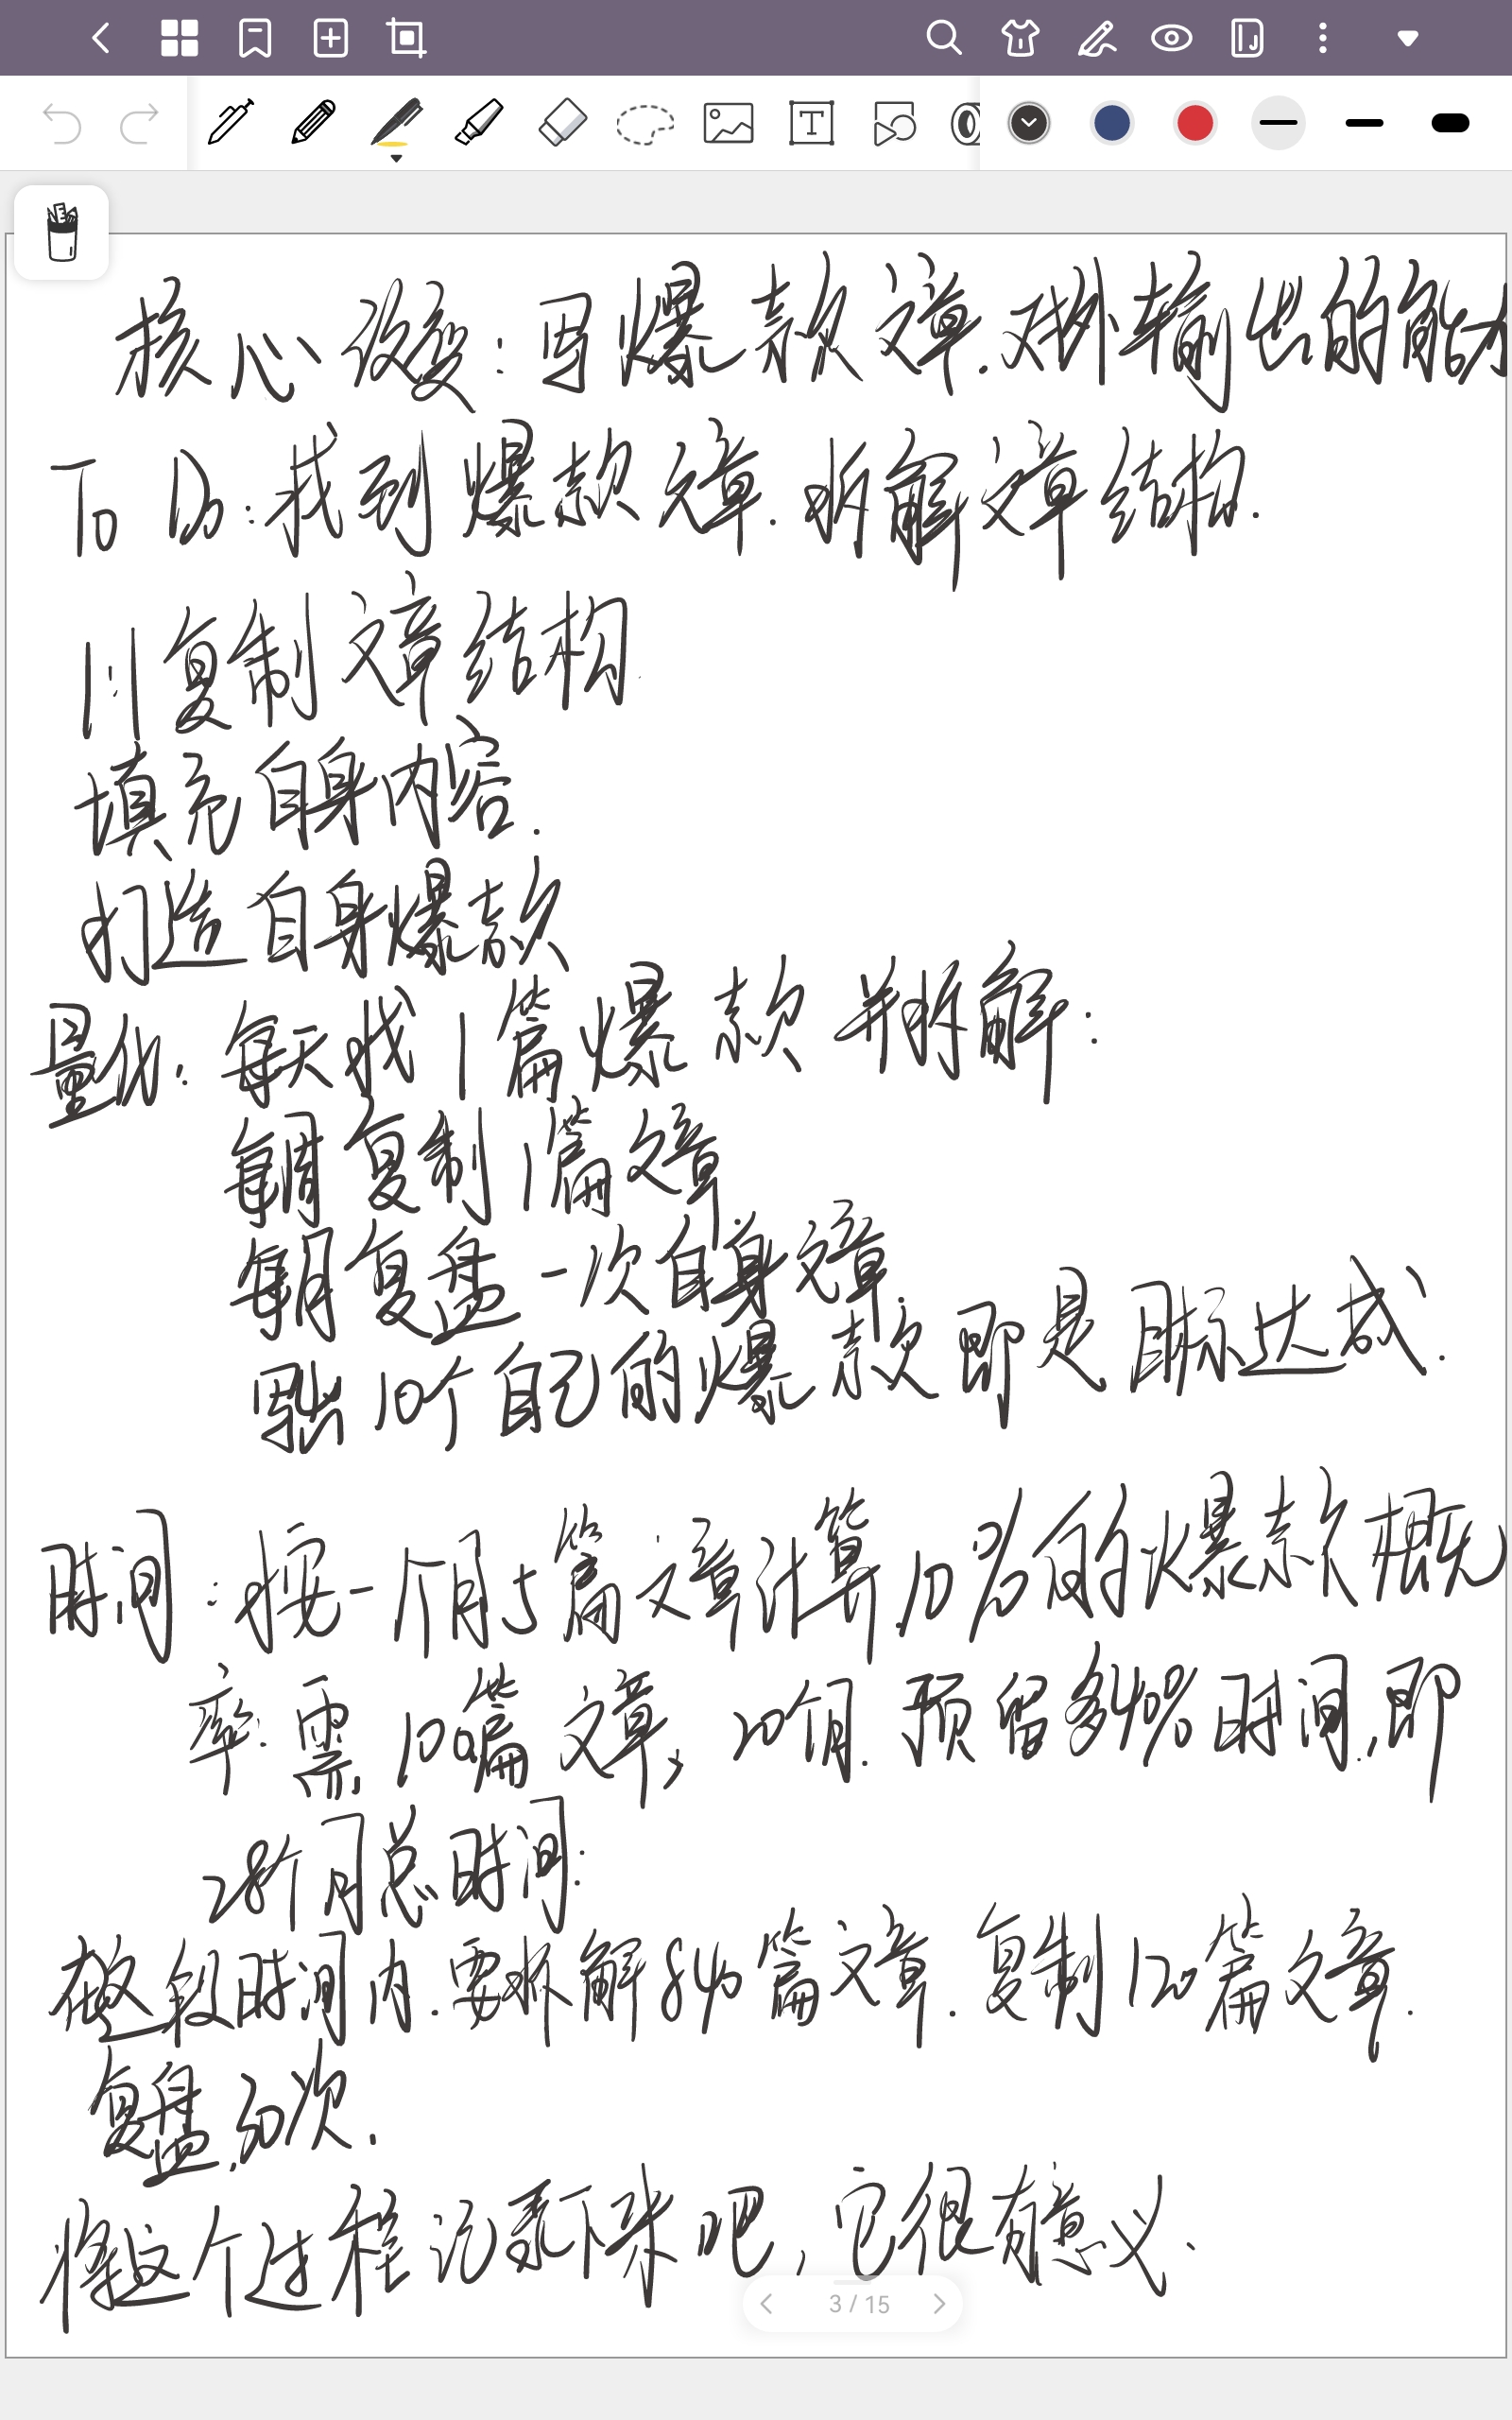 核心改变:写爆款文章.对外输出的能力
To Do:找到爆款文章.拆解文章结构.
1:1复制文章结构.
填充自身内容.
打造自身爆款
量化:每天找1篇爆款并拆解:
每周复制1篇文章
每月复盘一次自身文章.
写出10个自己的爆款即是目标达成.
时间:按一个月5篇文章计算.10%的爆款概
率:需100篇文章,20个月.预留多40%时间.即
28个月总时间:
在这段时间内.要拆解840篇文章.复制120篇文章.
复盘30次.
将这个过程记录下来吧,它很有意义.
3 / 15